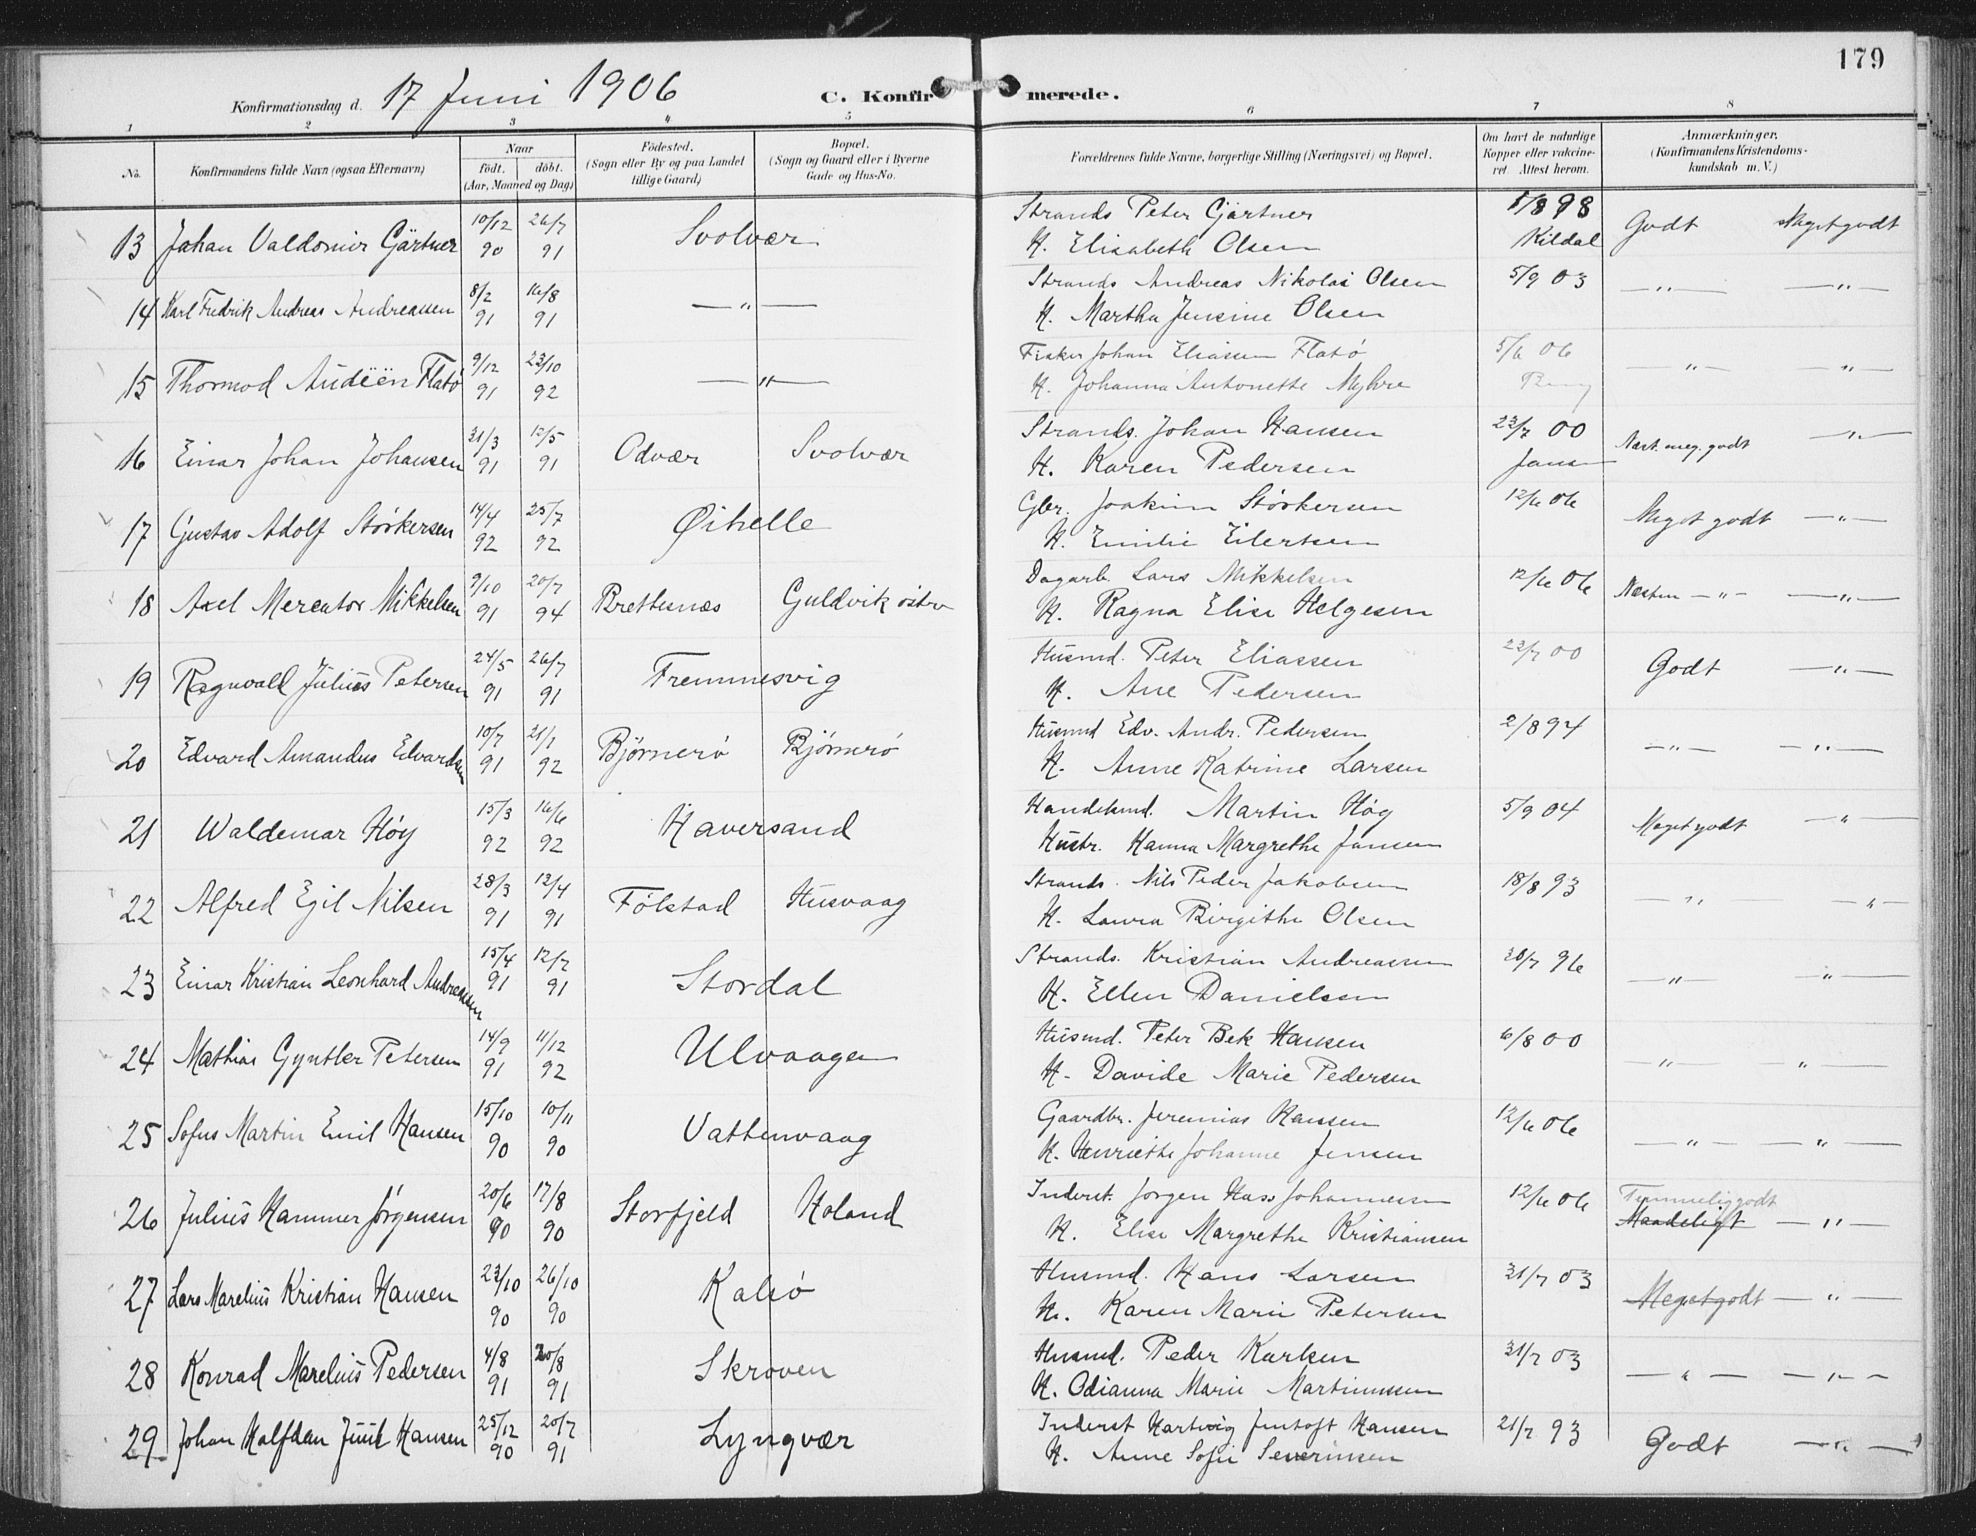 179
Konfirmationsdag d. 17 Juni 1906 C. Konfirmerede.
1 2 3 4 5 6 7 8
No. Konfirmandens fulde Navn (ogsaa Efternavn) Naar födt. döbt. (Aar, Maaned og Dag) Födested. (Sogn eller By og paa Landet tillige Gaard) Bopæl. (Sogn og Gaard eller i Byerne Gade og Hus-No. Forældrenes fulde Navne, borgerlige Stilling (Næringsvei) og Bopæl. Om havt de naturlige Kopper eller vakcineret. Attest herom. Anmærkninger. (Konfirmandens Kristendomskundskab m. V.)
13 Johan Valdomir Gärtner 10/12 90 26/7 91 Svolvær Strands Peter Gjärtner 5/8 98 Godt Megetgodt
H. Elisabeth Olsen Kildal
14 Karl Fredrik Andreas Andreassen 8/2 91 16/8 91 —"— Strands Andreas Nikolai Olsen 5/9 03 —"— —"—
H. Martha Jensine Olsen
15 Thormod Audëën Flatö 9/12 91 23/10 92 —"— Fisker Johan Eliassen Flatö 5/6 06 —"— —"—
H. Johanna Antonette Myhre
16 Einar Johan Johansen 31/3 91 12/5 91 Odvær Svolvær Strands. Johan Hansen 23/7 00 Næst. meg. godt —"—
H. Karen Pedersen
17 Gustav Adolf Störkersen 14/4 92 25/7 92 Øihelle Gbr. Joakim Störkersen 12/6 06 Meget godt —"—
H. Emilie Eilertsen
18 Axel Mercator Mikkelsen 9/10 91 20/7 94 Brettesnæs Guldvik östre Dagarb. Lars Mikkelsen 12/6 06 Næsten —"— —"—
H. Ragna Elise Helgesen
19 Ragnvall Julius Petersen 24/5 91 26/7 91 Fremmesvig Husmd. Peter Eliassen 23/7 00 Godt —"—
H. Ane Pedersen
20 Edvard Amandus Edvardsen 10/7 91 21/7 92 Björnerö Björnerö Husmd Edv. Andr. Pedersen 2/8 94 —"— —"—
H. Anne Katrine Larsen
21 Waldemar Höy 15/3 92 16/6 92 Haversand Handelsmd. Martin Hög 5/9 04 Meget godt —"—
Hustr. Hanna Margrethe Jansen
22 Alfred Egil Nilsen 28/3 91 12/4 91 Fölstad Husvaag Strands. Nils Peder Jakobsen 18/8 93 —"— —"—
H. Laura Birgithe Olsen
23 Einar Kristian Leonhard Andreassen 15/4 91 12/7 91 Stordal Strands. Kristian Andreassen 30/7 96 —"— —"—
H. Ellen Danielsen
24 Mathias Gyntler Petersen 14/9 91 11/12 92 Ulvaagen Husmd. Peter Bek Hansen 6/8 00 —"— —"—
H. Davide Marie Pedersen
25 Sofus Martin Emil Hansen 15/10 90 10/11 90 Vattenvaag Gaardbr. Jeremias Hansen 12/6 06 —"— —"—
H. Henriette Johanne Jensen
26 Julius Hammer Jörgensen 20/6 90 17/8 90 Storfjeld Holand Inderst. Jörgen Hass Johannesen 12/6 06 Temmelig godt Maadeligt —"—
H. Elise Margrethe Kristiansen
27 Lars Marelius Kristian Hansen 23/10 90 26/10 90 Kalsö Husmd. Hans Larsen 31/7 03 Megetgodt —"—
H. Karen Marie Petersen
28 Konrad Marelius Pedersen 4/8 91 20/8 91 Skroven Husmd. Peder Karlsen 31/7 03 —"— —"—
H. Odianna Marie Martinussen
29 Johan Halfdan Juul Hansen 25/12 90 20/7 91 Lyngvær Inderst Hartvig Jentoft Hansen 21/7 93 Godt —"—
H. Anne Sofie Severinsen